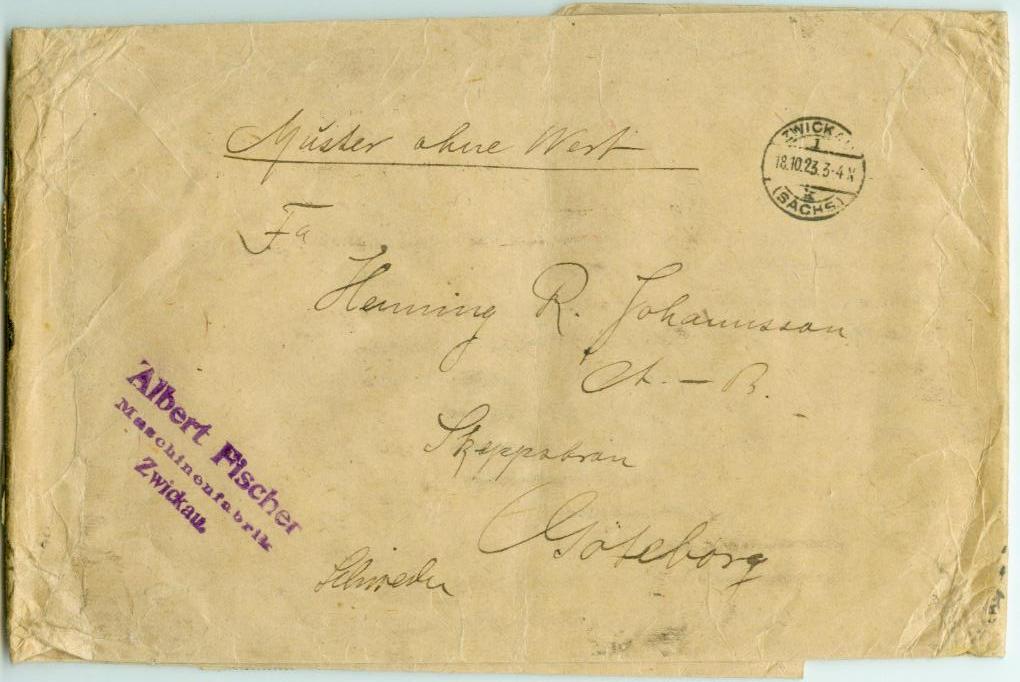 Muster ohne Wert
ZWICKAU
1
18.10.23. 3-4 N
k
(SACHS.)
Fa
Henning R. Johannsson
A.-B.
Skeppsbron
Göteborg
Schweden
Albert Fischer
Maschinenfabrik
Zwickau.